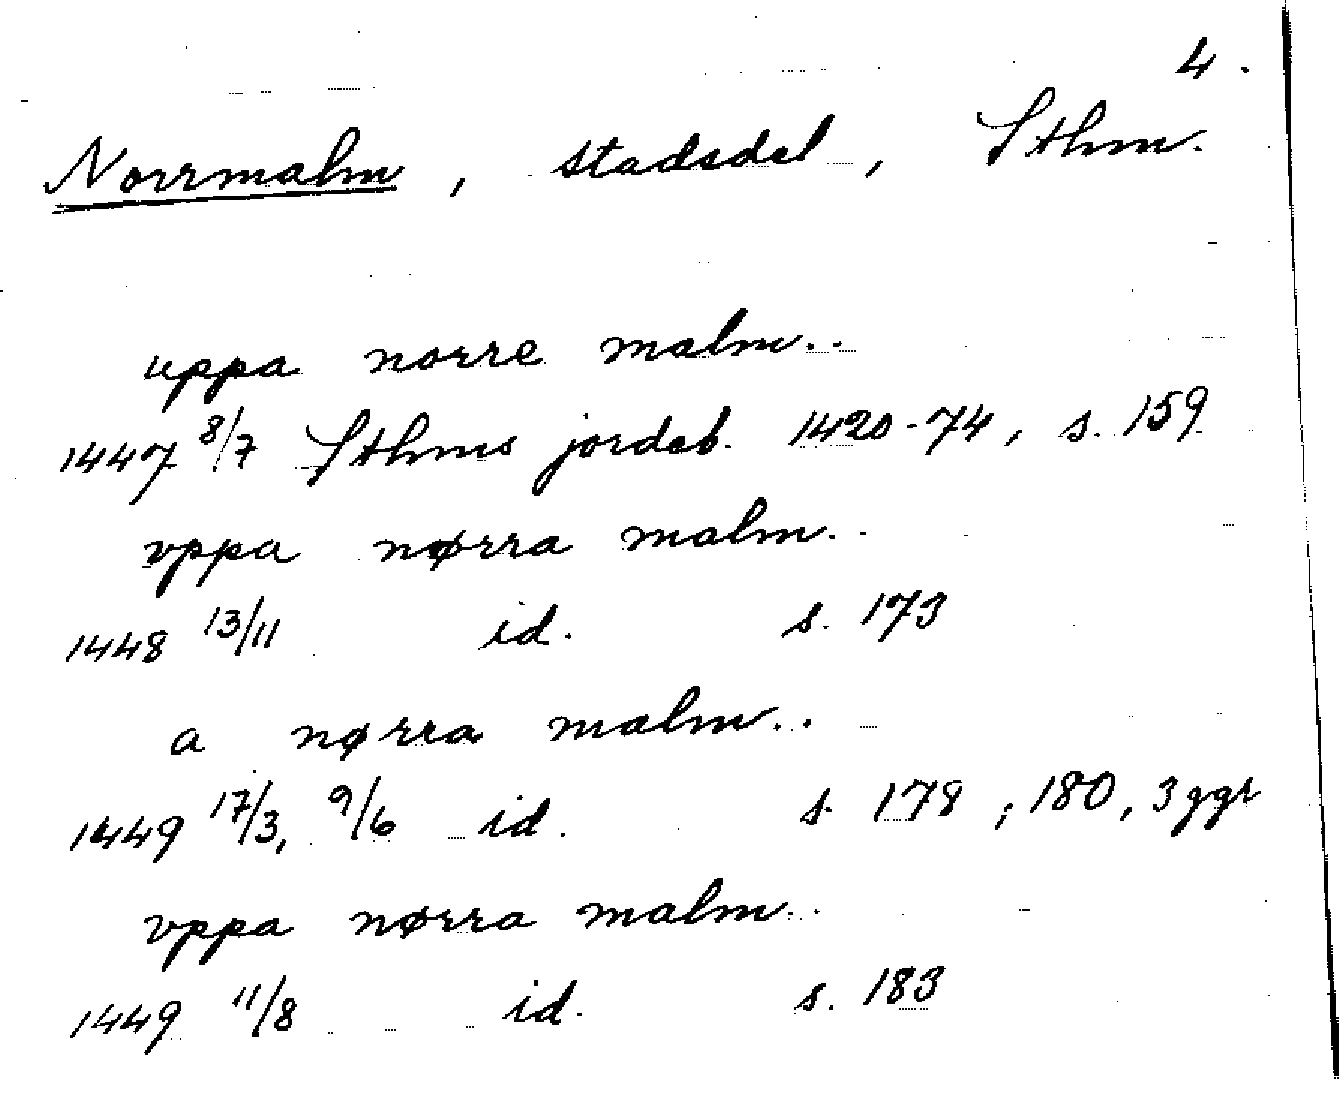 4.
Norrmalm, stadsdel, Sthm.
uppa norre malm..
1447 8/7 Sthms jordeb. 1420-74, s. 159
vppa nørra malm..
1448 13/11 id. s. 173
a nørra malm..
1449 17/3, 9/6 id. s. 178, 180, 3 ggr
vppa nørra malm..
1449 11/8 id. s. 183